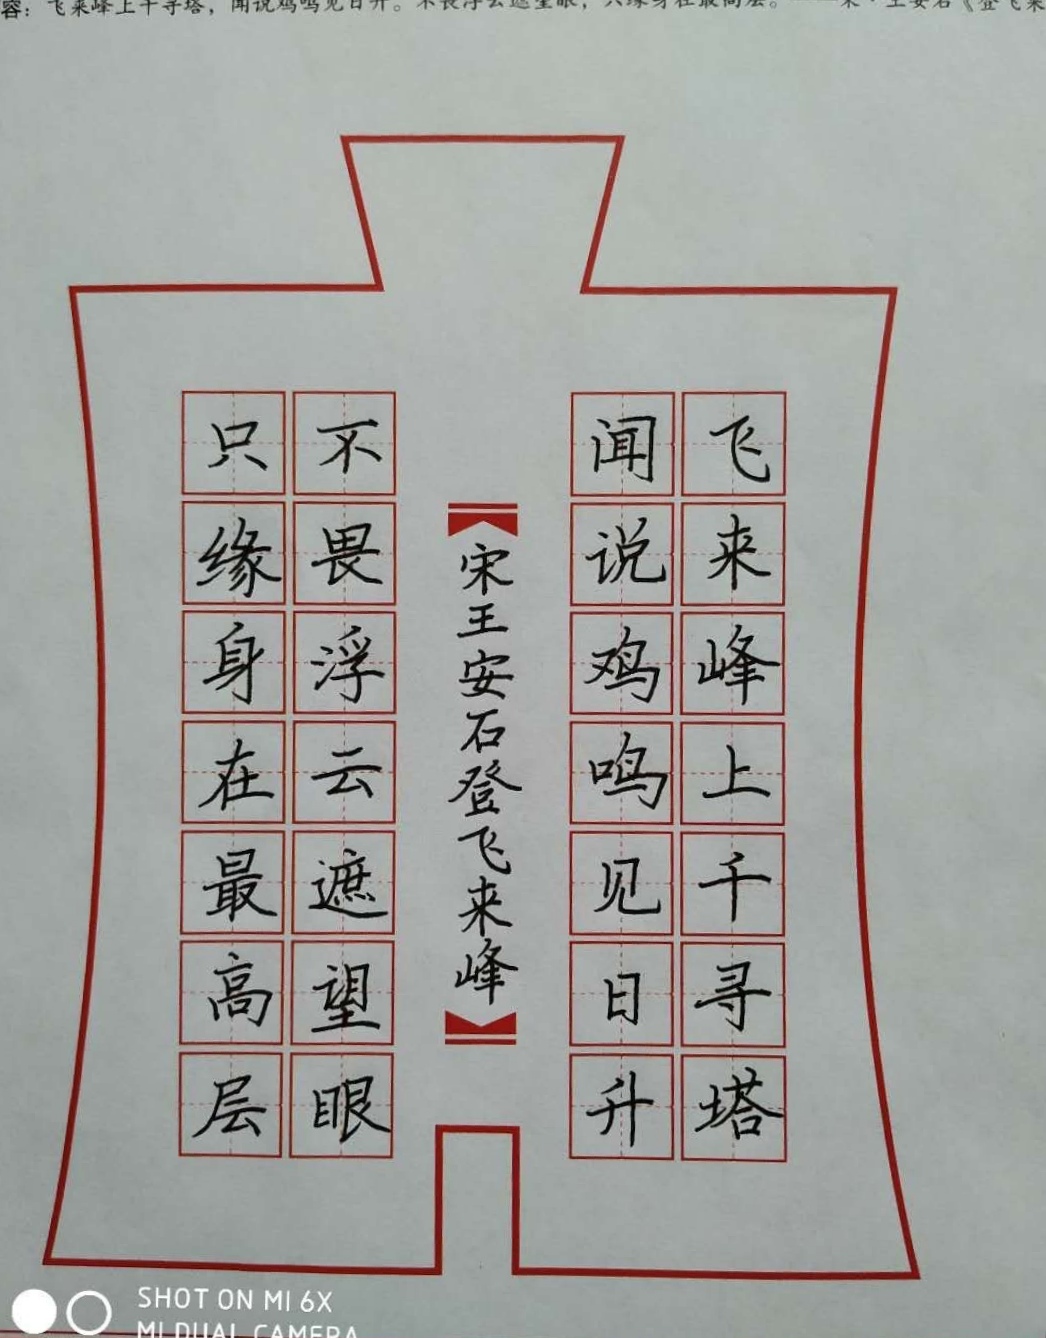 容：飞来峰上千寻塔，闻说鸡鸣见日升。不畏浮云遮望眼，只缘身在最高层。——宋·王安石《登飞来
飞来峰上千寻塔
闻说鸡鸣见日升
宋王安石登飞来峰
不畏浮云遮望眼
只缘身在最高层
SHOT ON MI 6X
MI DUAL CAMERA